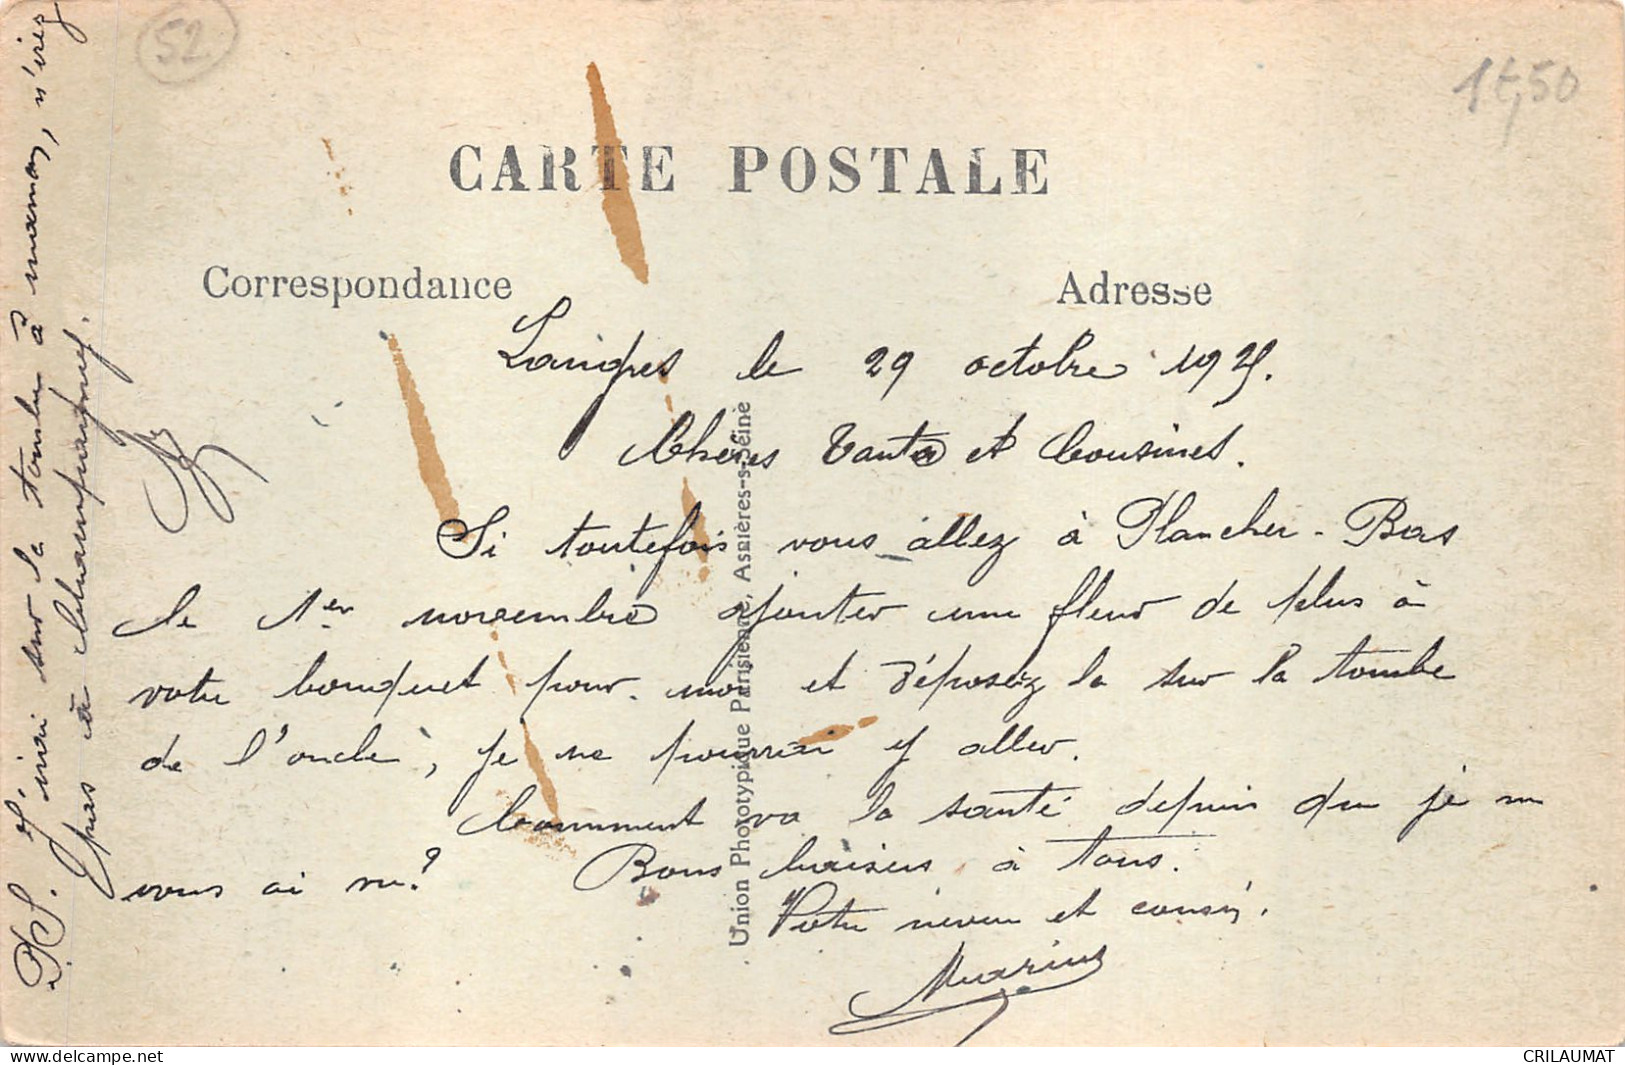 52
1€,50
CARTE POSTALE
Correspondance
Adresse
Langres le 29 octobre 1925.
Chères Tante et Cousines.
Si toutefois vous allez à Plancher-Bas
le 1er novembre ajouter une fleur de plus à
votre bouquet pour moi et déposez la sur la tombe
de l'oncle, je ne pourrai y aller.
Comment va la santé depuis que je ne
vous ai vu? Bons baisers à tous.
Votre neveu et cousin.
Marius
PS. J'irai sur la tombe à maman, n'irez
pas à Champagney.
Union Phototypique Parisienne, Asnières-s-Seine
www.delcampe.net
CRILAUMAT